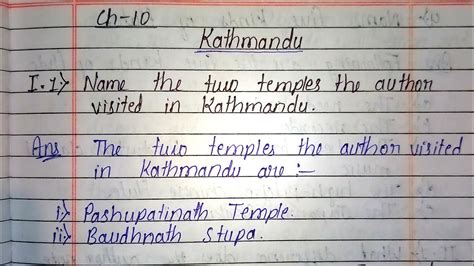 Ch-10
Kathmandu
I.1> Name the two temples the author
visited in Kathmandu.
Ans - The two temples the author visited
in Kathmandu are :-
i> Pashupatinath Temple.
ii> Baudhnath Stupa.